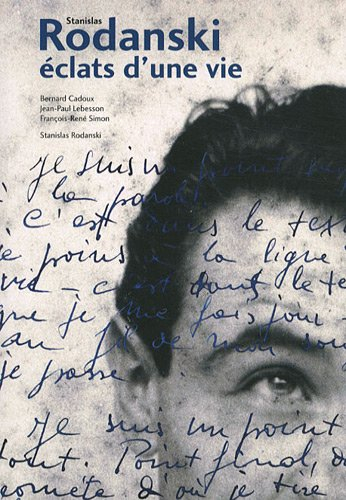 Stanislas
Rodanski
éclats d'une vie
Bernard Cadoux
Jean-Paul Lebesson
François-René Simon
Stanislas Rodanski
je suis un point
à la
c'est dans le tex
e poins à la ligne
vie - c'est dans le te
que je me fais jour -
au fil de mon
je passe
Je suis un point
tout. Point final, d
comète d'où je tire